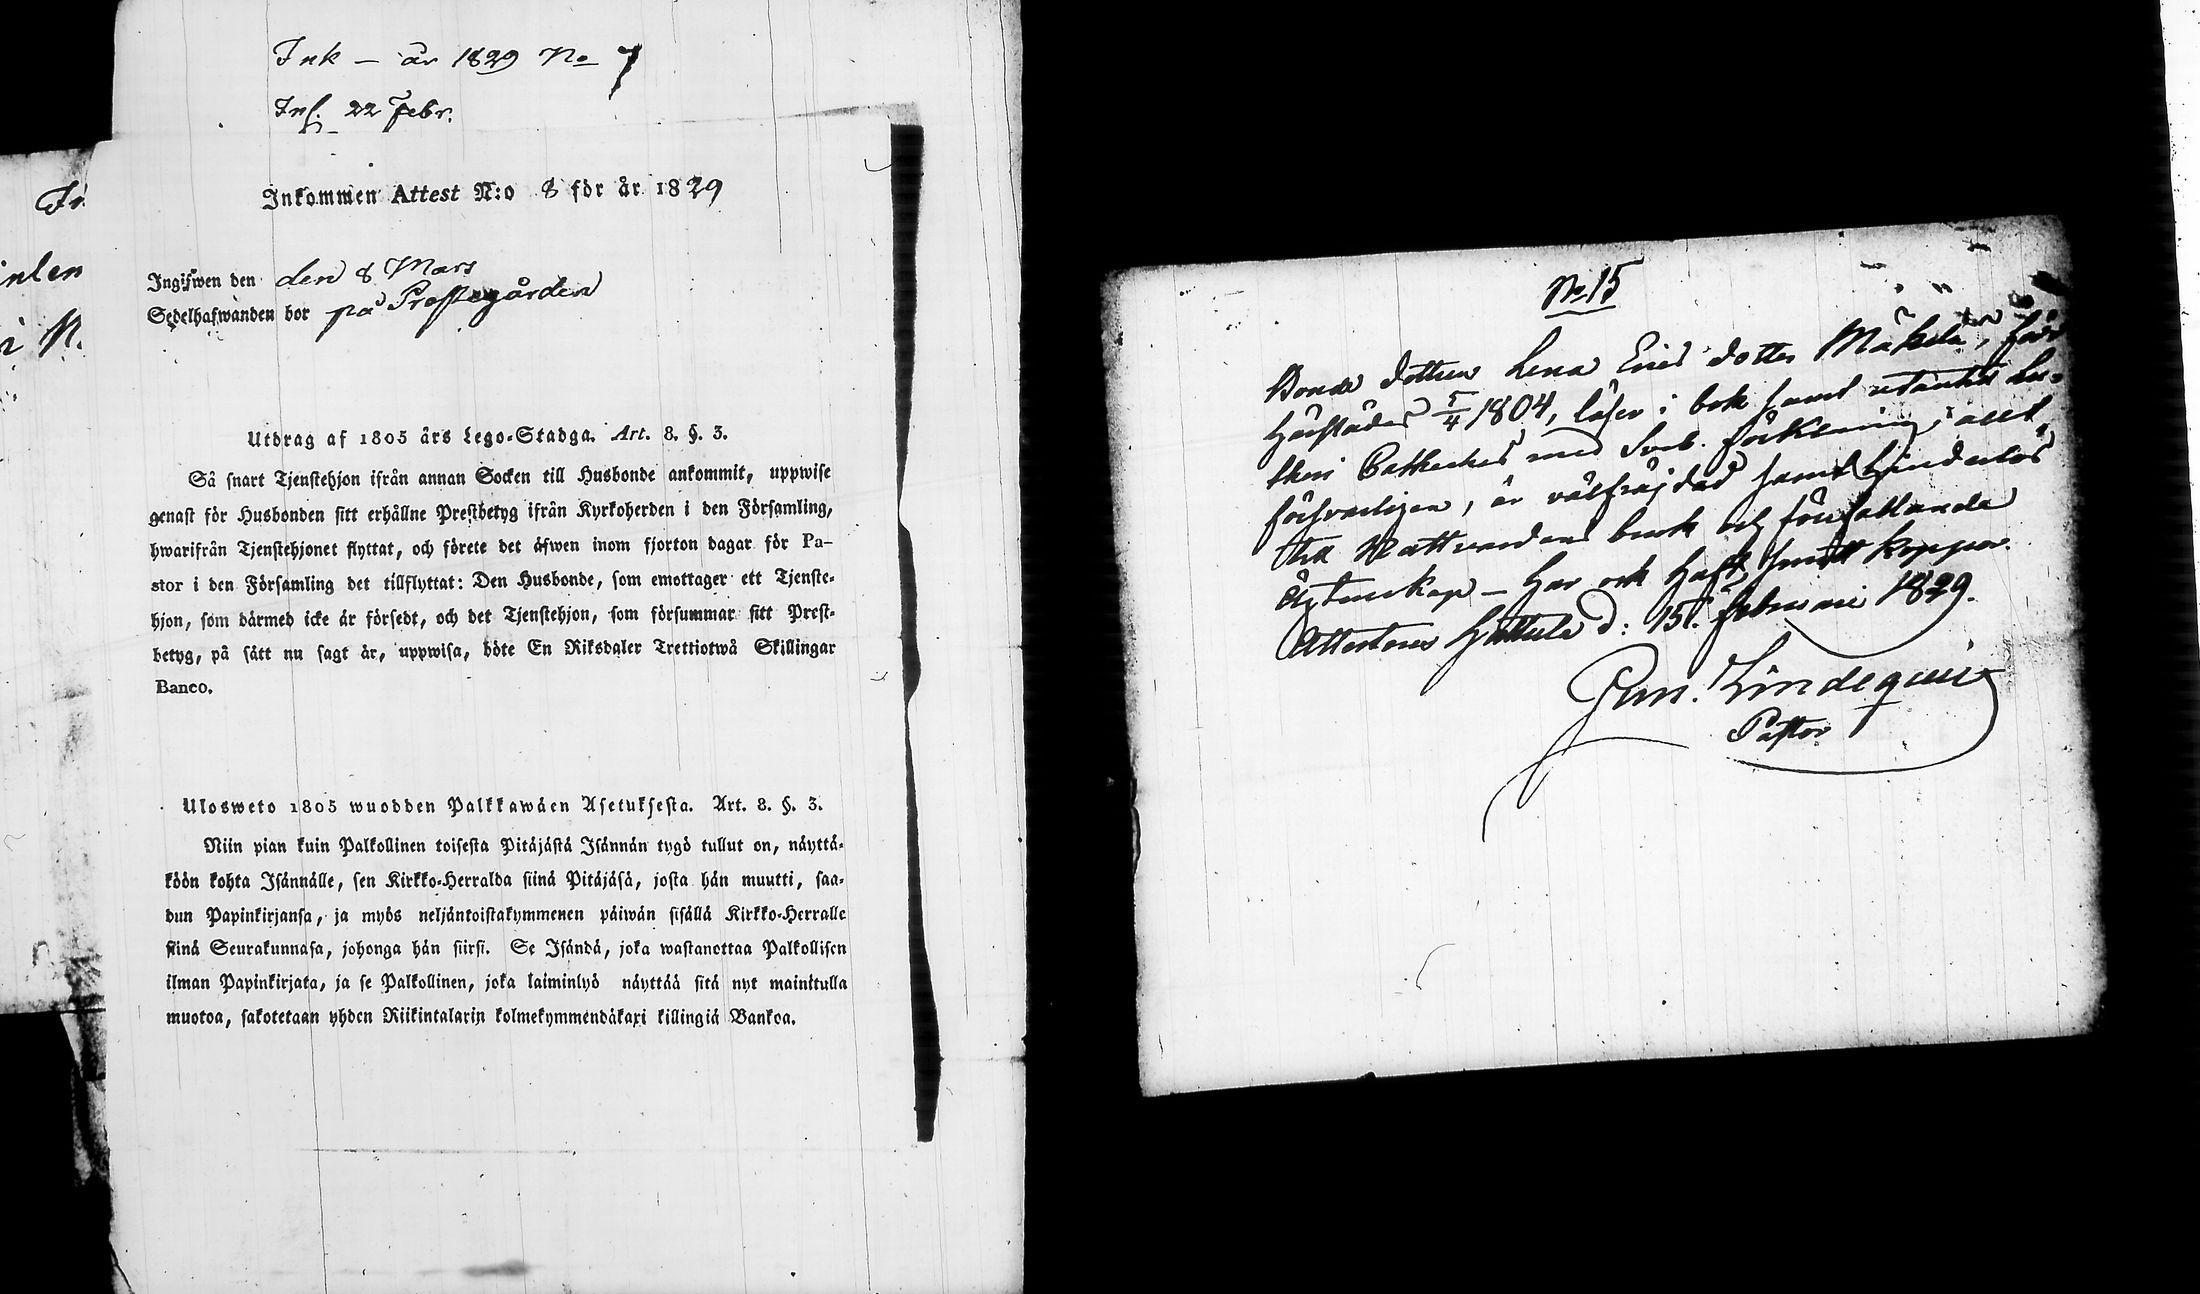 Ink – år 1829 No 7
Inl. 22 Febr.
Inkommen Attest N:o 8 för år 1829
Ingifwen den den 8 Mars
Sedelhafwanden bor på Prestegården
Utdrag af 1805 års Lego-Stadga. Art. 8. §. 3.
Så snart Tjenstehjon ifrån annan Socken till Husbonde ankommit, uppwise
genast för Husbonden sitt erhållne Prestbetyg ifrån Kyrkoherden i den Församling,
hwarifrån Tjenstehjonet flyttat, och förete det äfwen inom fjorton dagar för Pa-
stor i den Församling det tillflyttat: Den Husbonde, som emottager ett Tjenste-
hjon, som därmed icke är försedt, och det Tjenstehjon, som försummar sitt Prest-
betyg, på sätt nu sagt är, uppwisa, böte En Riksdaler Trettiotwå Skillingar
Banco.
Ulosweto 1805 wuodden Palkkawäen Asetuksesta. Art. 8. §. 3.
Niin pian kuin Palkollinen toisesta Pitäjästä Isännän tygö tullut on, näyttä-
köön kohta Isännälle, sen Kirkko-Herralda siinä Pitäjäsä, josta hän muutti, saa-
dun Papinkirjansa, ja myös neljäntoistakymmenen päiwän sisällä Kirkko-Herralle
siinä Seurakunnasa, johonga hän siirsi. Se Isändä, joka wastanottaa Palkollisen
ilman Papinkirjata, ja se Palkollinen, joka laiminlyö näyttää sitä nyt mainitulla
muotoa, sakotetaan yhden Riikintalarin kolmekymmendäkaxi killingiä Bankoa.
Fr.
inlem
i N.
No 15
Bonde dottren Lena Ericsdotter Mäkelä, född
härstädes 5/4 1804, läser i bok samt utantill Lu-
theri Catheches med Sveb. förklaring, allt
försvarligen, är välfräjdad samt hinderlös
till Nattvardens bruk och förefallande
Ägtenskap – har ock haft smittkoppor.
Attesteras Hattula d: 15. februarii 1829.
Gum. Lindequist
Pastor